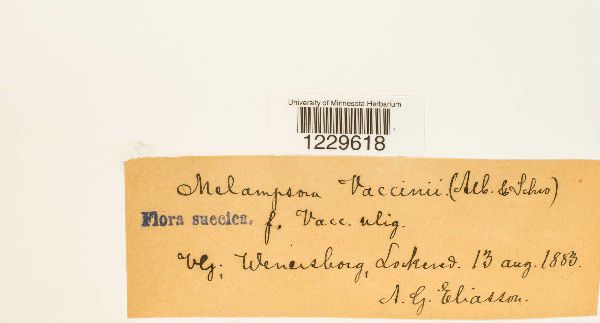 University of Minnesota Herbarium
1229618
Melampsora Vaccinii. (Alb. & Schw)
Flora suecica. f. Vacc. ulig.
Vg; Wenersborg, 13 aug. 1883.
A. G. Eliasson.